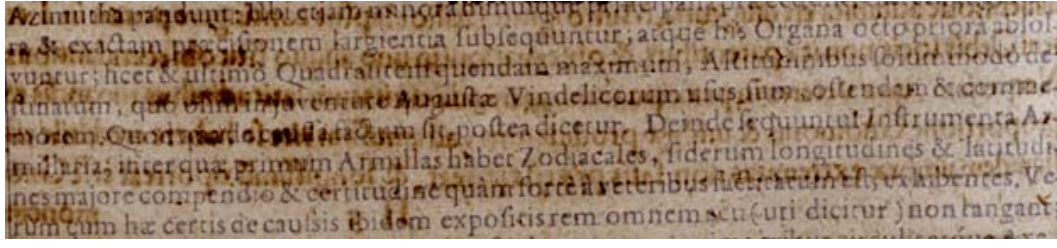 Azimutha pandunt: bibi etiam minora
ra & exactam præcisionem largientia subsequuntur; atque his Organa octo priora absol
vuntur; licet & ultimò Quadrantem quendam maximum, Altitudinibus solummodo de
stinatum, quo olim in juventute Augustæ Vindelicorum usus sum, ostendam & comme
morem. Quod qua de causa factum sit, postea dicetur. Deinde sequuntur Instrumenta Ar
millaria, inter quæ primum Armillas habet Zodiacales, siderum longitudines & latitudi
nes majore compendio & certitudine quàm fortè à veteribus factitatum est, exhibentes. Ve
rum cum hæ certis de causis ibidem expositis rem omnem acu (uti dicitur) non tangant